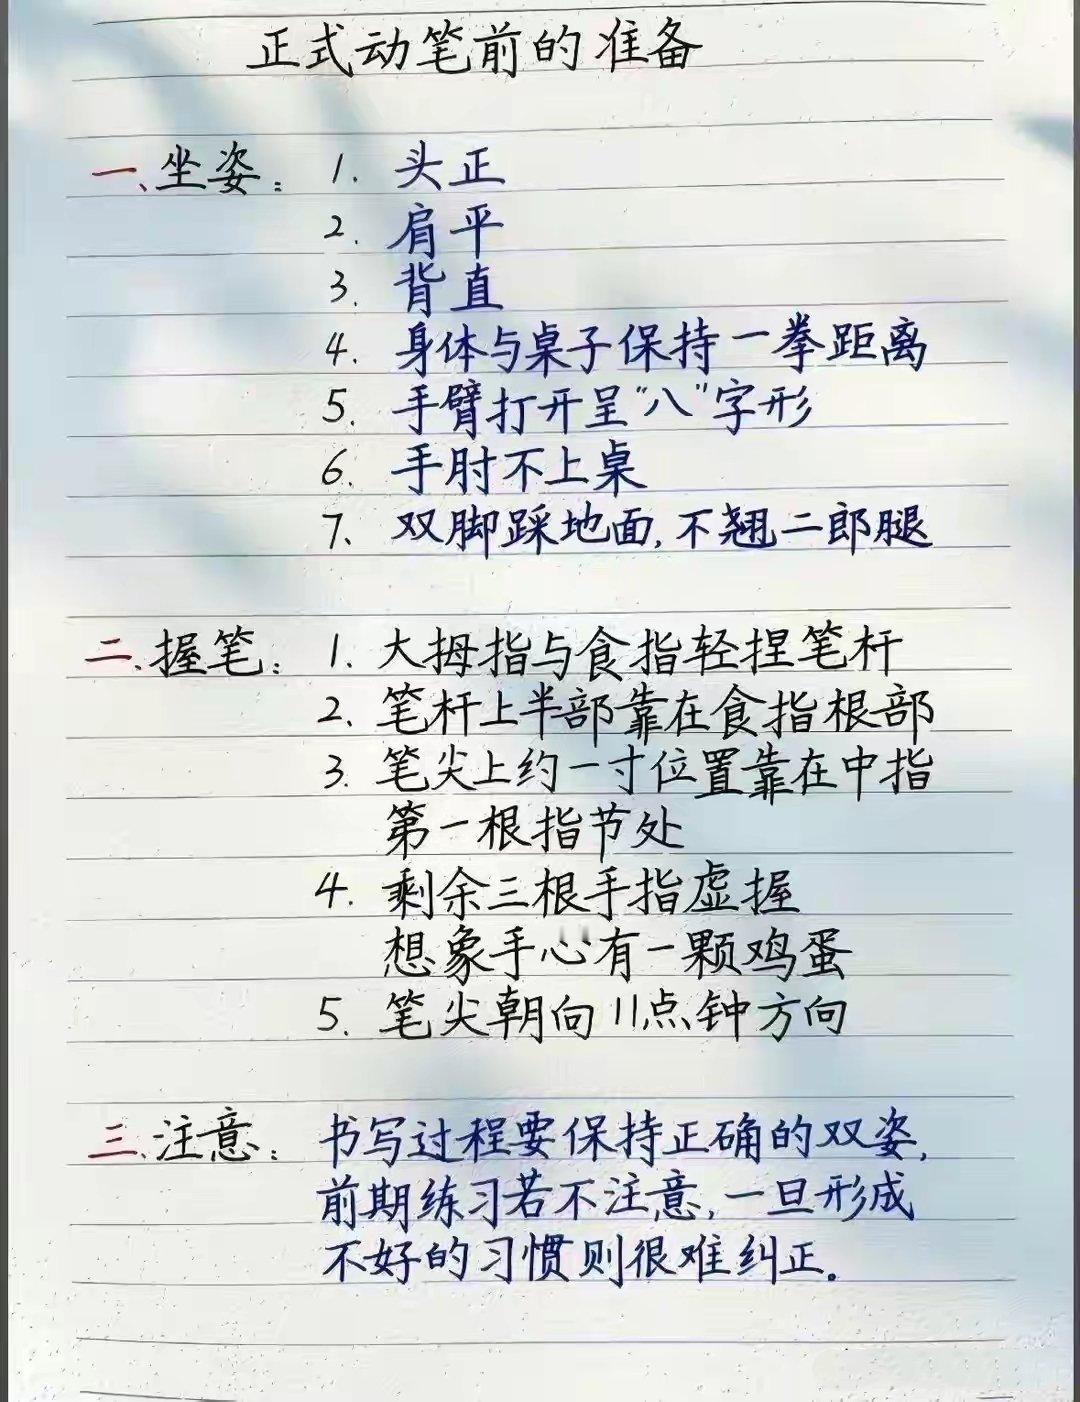 正式动笔前的准备
一、坐姿：1. 头正
2. 肩平
3. 背直
4. 身体与桌子保持一拳距离
5. 手臂打开呈“八”字形
6. 手肘不上桌
7、双脚踩地面，不翘二郎腿
二、握笔：1. 大拇指与食指轻捏笔杆
2. 笔杆上半部靠在食指根部
3. 笔尖上约一寸位置靠在中指
第一根指节处
4. 剩余三根手指虚握
想象手心有一颗鸡蛋
5. 笔尖朝向11点钟方向
三、注意：书写过程要保持正确的双姿，
前期练习若不注意，一旦形成
不好的习惯则很难纠正。